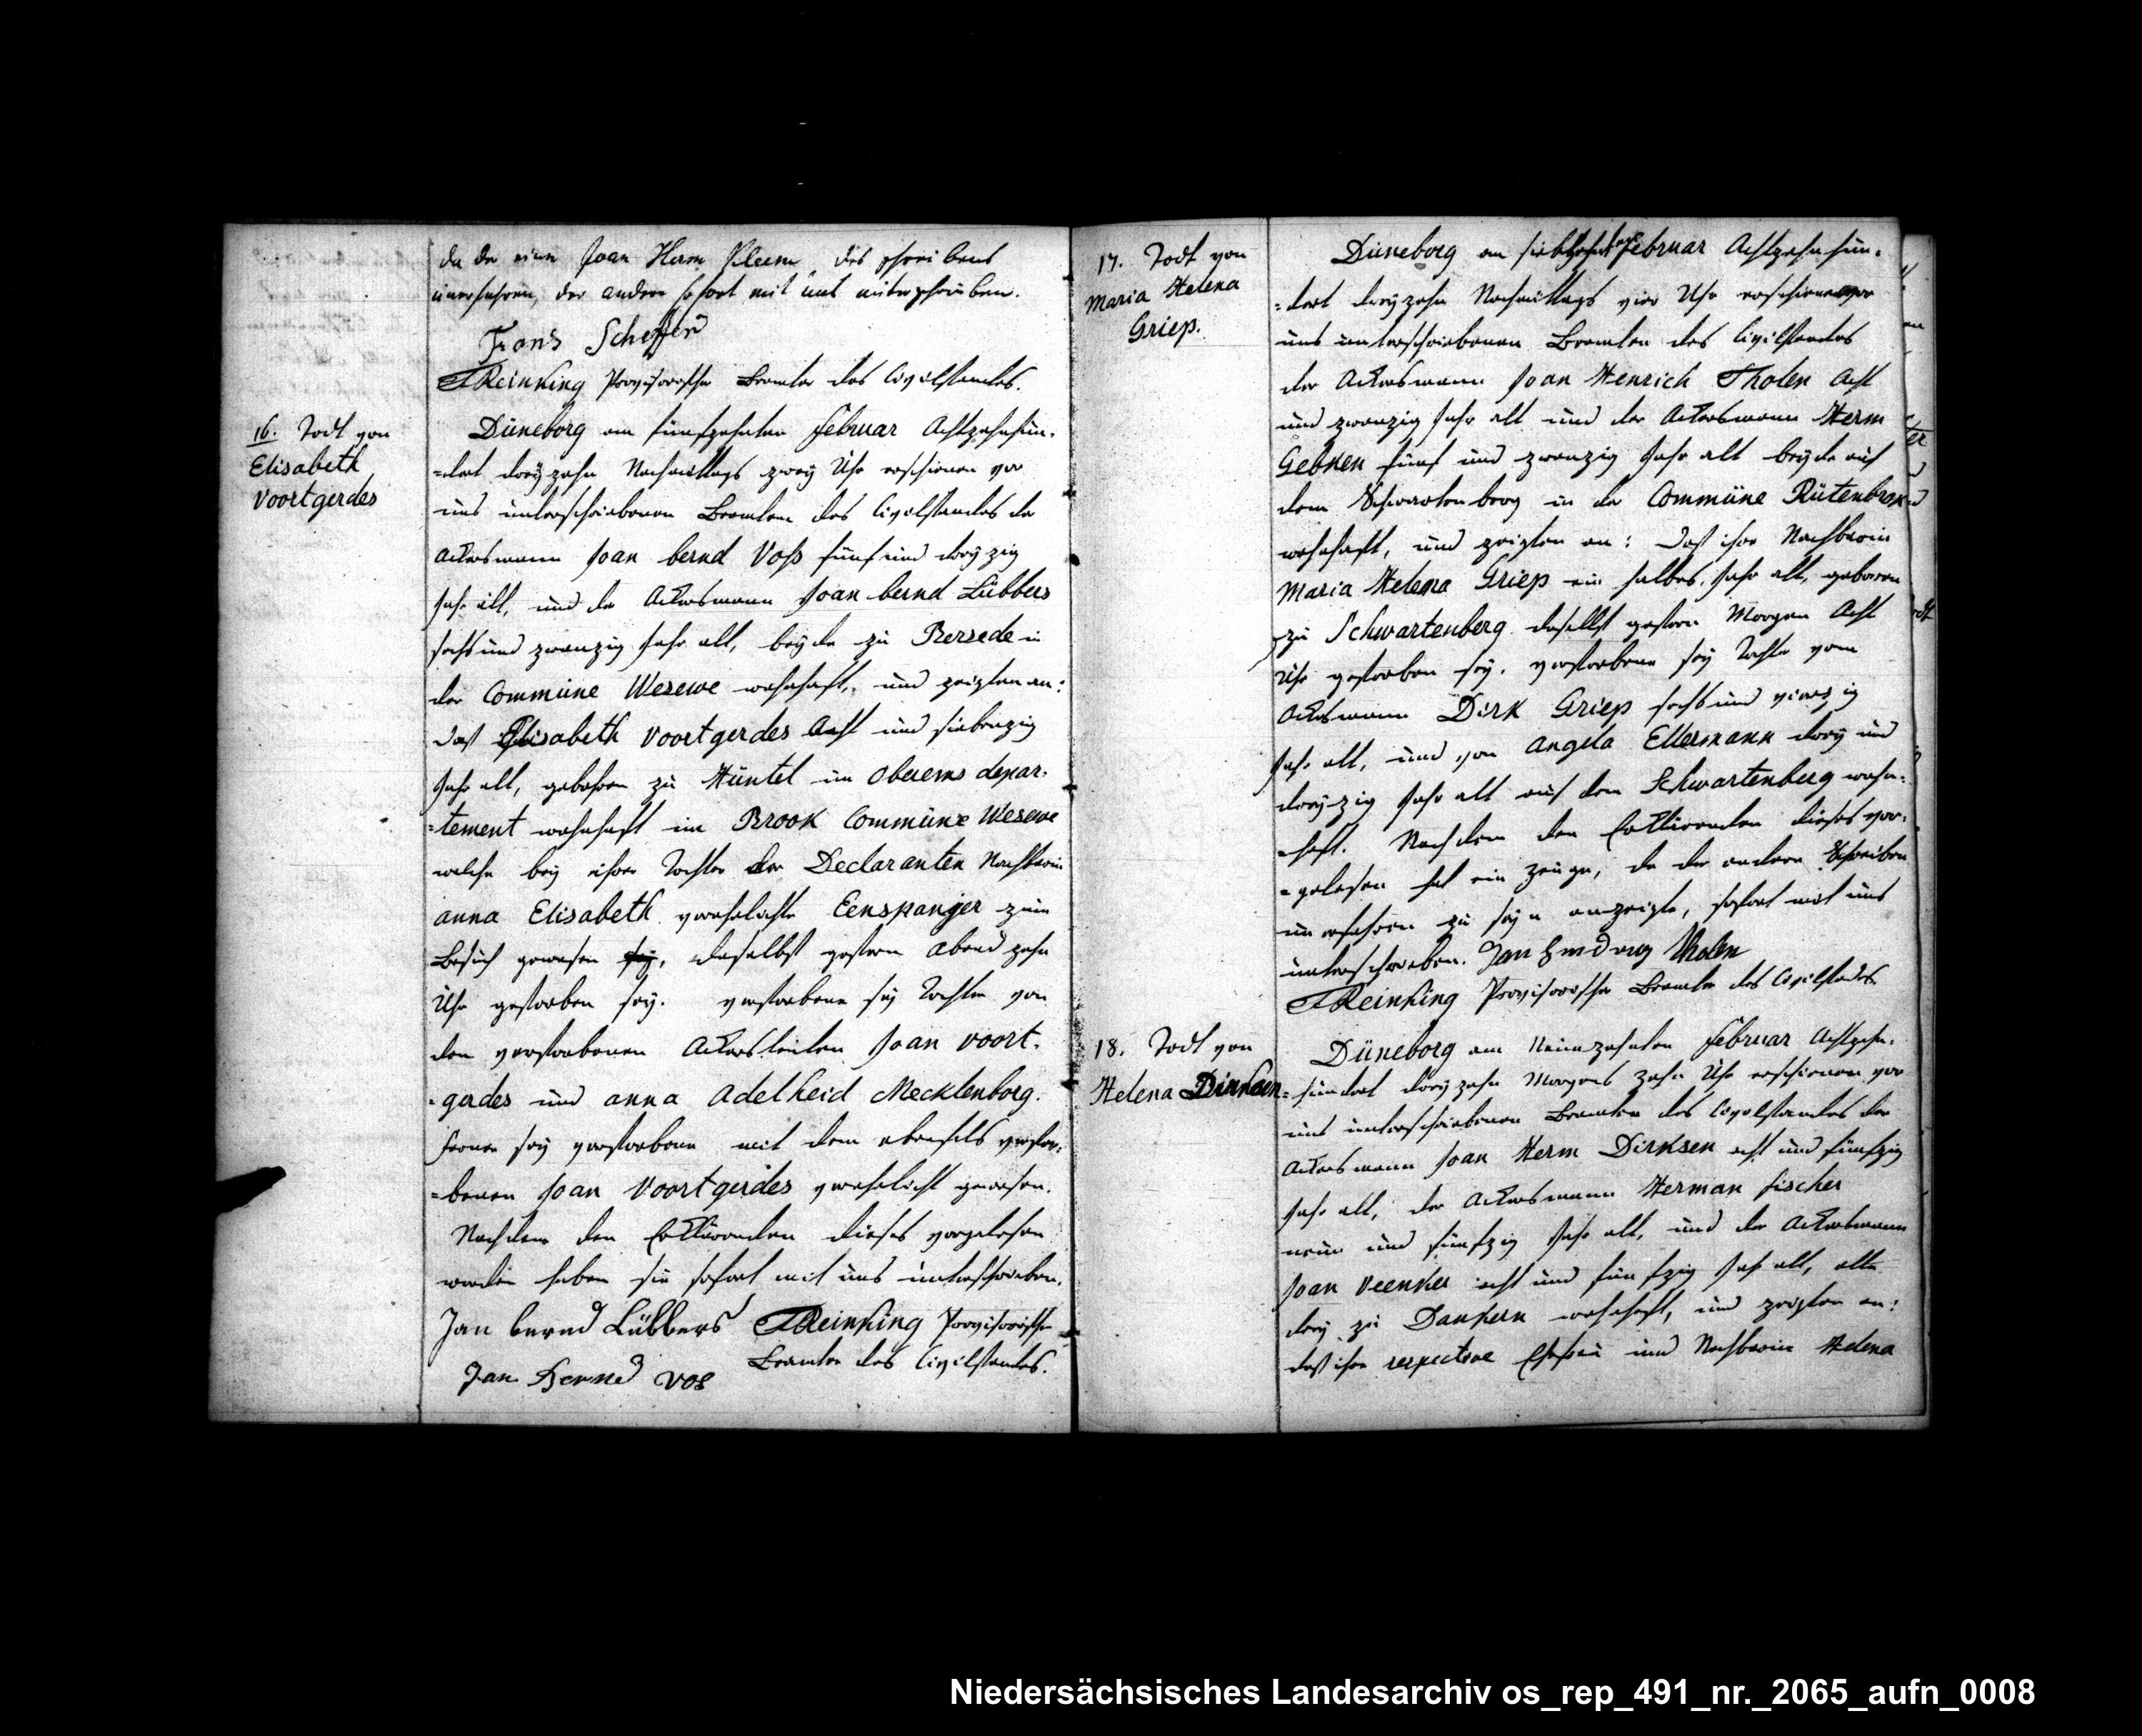 da der eine Joan Herm Kleene des schreibens
unerfahren, der andere sofort mit uns unterschrieben.
Frans Scheffer
Reinking Provisorischer Beamter des Civilstandes.
16. Todt von
Elisabeth
Voortgerdes
Düneborg am fünfzehnten Februar Achtzehnhun-
=dert dreÿzehn Nachmittags zweÿ Uhr erschienen vor
uns unterschriebenen Beamten des Civilstandes der
Ackersmann Joan bernd Voss fünfund dreÿzig
Jahr alt, und der Ackersmann Joan bernd Lübbers
sechsund zwanzig Jahr alt, beÿde zu Bersede in
der Commüne Wesewe wohnhaft, und zeigten an:
Dast Elisabeth Voortgerdes Acht und siebenzig
Jahr alt, gebohren zu Hüntel im Oberems depar-
=tement wohnhaft im Brook Commüne Wesewe
welche beÿ ihrer Tochter der Declaranten Nachbarin
anna Elisabeth verehelichte Eenspanjer zum
Besuch gewesen, daselbst gestern Abend zehn
Uhr gestorben seÿ. verstorbene seÿ Tochter von
den verstorbenen Ackersleuten Joan voort-
-gerdes und anna Adelheid Mecklenborg.
ferner seÿ verstorbene mit dem ebenfals verstor-
=benen Joan Voortgerdes verehelicht gewesen.
Nachdem den Erklärenden dieses vorgelesen
worden haben sie sofort mit uns unterschrieben.
Jan bernd Lübbers Reinking Provisorischer
Beamter des Civilstandes.
Jan Bernd vos
17. Todt von
Maria Helena
Griep.
Düneborg am siebzehnten Februar Achtzehnhün-
=dert dreÿzehn Nachmittags vier Uhr erschienen vor
uns unterschriebenen Beamten des Civilstandes
der Ackersmann Joan Henrich Tholen Acht
und zwanzig Jahr alt und der Ackersmann Herm
Gebken fünf und zwanzig Jahr alt beÿde auf
dem Schwartenberg in der Commüne Rütenbrok
wohnhaft, und zeigten an: Dast ihre Nachbarin
Maria Helena Griep ein halbes Jahr alt, geboren
zu Schwartenberg daselbst gestern Morgen Acht
Uhr gestorben seÿ. verstorbene seÿ Tochter vom
Ackersmann Dirk Griep sechsund vierzig
Jahr alt, und von Angela Ellermann dreÿ und
dreÿzig Jahr alt auf dem Schwartenberg wohn-
=haft. Nachdem den Erklärenden dieses vor-
=gelesen hat ein Zeuge, da der andere Schreiben
unerfahren zu seÿn anzeigte, sofort mit uns
unterschrieben. Jan Hindrig Tholen
Reinking Provisorischer Beamter des Civilstandes
18. Todt von
Helena Dirksen
Düneborg am Neunzehnten Februar Achtzehn-
=hundert dreÿzehn Morgens zehn Uhr erschienen vor
uns unterschriebenen Beamten des Civilstandes der
Ackersmann Joan Herm Dirksen acht und fünfzig
Jahr alt, der Ackersmann Herman fischer
neun und fünfzig Jahr alt, und der Ackersmann
Joan Veenker acht und fünfzig Jahr alt, alle
dreÿ zu Dankern wohnhaft, und zeigten an:
dast ihre respective Ehefrau und Nachbarin Helena
Niedersächsisches Landesarchiv os_rep_491_nr._2065_aufn_0008